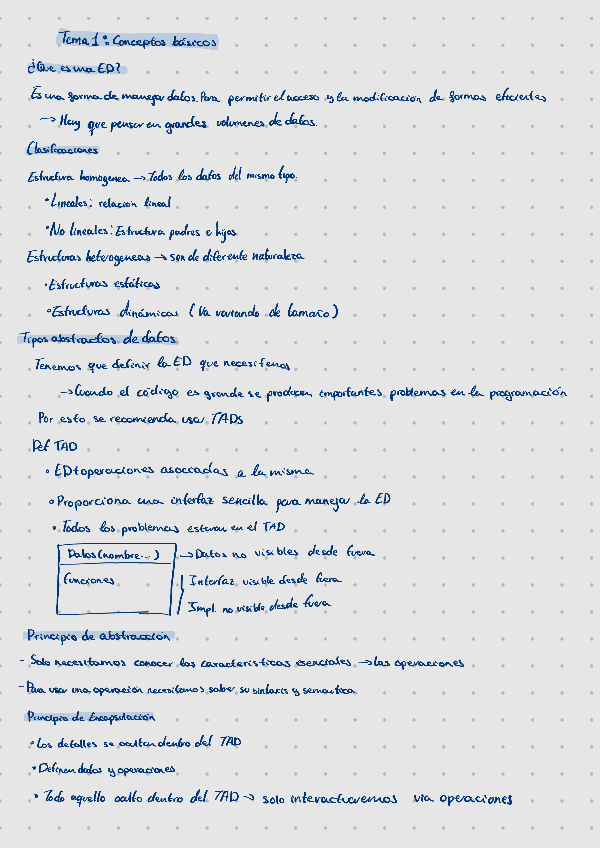 Tema 1: Conceptos básicos
¿Que es una ED?
Es una forma de manejar datos. Para permitir el acceso y la modificación de formas eficientes
→ Hay que pensar en grandes volumenes de datos.
Clasificaciones
Estructura homogenea → Todos los datos del mismo tipo.
• Lineales: relación lineal
• No lineales: Estructura padres e hijos
Estructuras heterogeneas → son de diferente naturaleza
• Estructuras estáticas
• Estructuras dinámicas (Va variando de tamaño)
Tipos abstractos de datos
Tenemos que definir la ED que necesitemos
→ Cuando el código es grande se producen importantes problemas en la programación
Por esto se recomienda usar TADs
Def TAD
• ED + operaciones asociadas a la misma
• Proporciona una interfaz sencilla para manejar la ED
• Todos los problemas estaran en el TAD
Datos (nombre...) → Datos no visibles desde fuera
Funciones Interfaz visible desde fuera
Impl. no visible desde fuera
Principio de abstracción
- Solo necesitamos conocer las caracteristicas esenciales → las operaciones
- Para usar una operación necesitamos saber su sintaxis y semantica
Principio de Encapsulación
• Los detalles se ocultan dentro del TAD
• Definen datos y operaciones
• Todo aquello oculto dentro del TAD → solo interactuaremos via operaciones